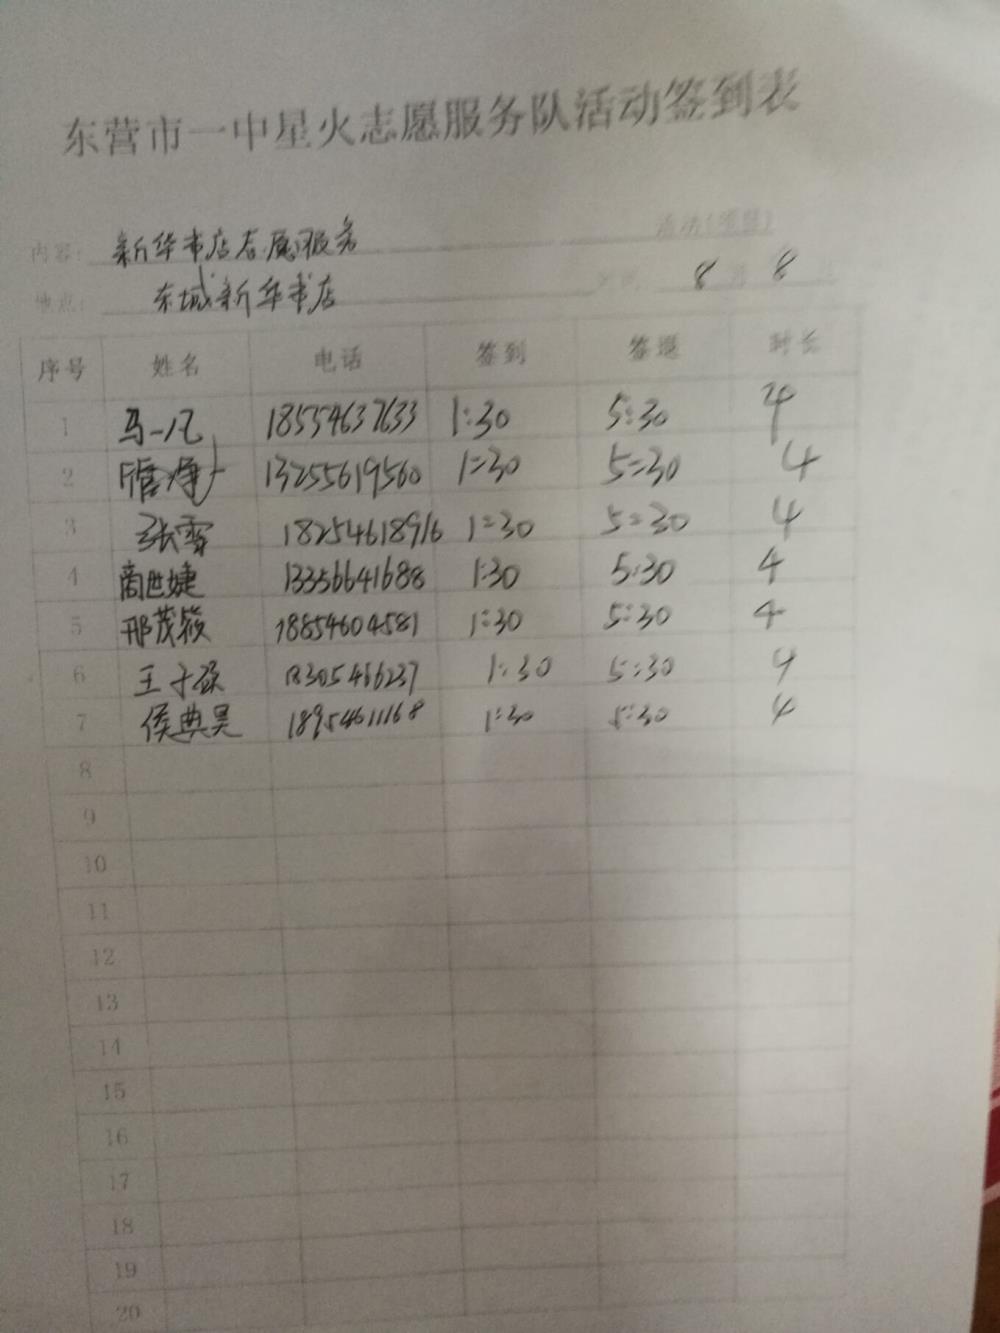 东营市一中星火志愿服务队活动签到表
活动(项目)
内容: 新华书店志愿服务
地点: 东城新华书店 时间 8 月 8 日
序号 姓名 电话 签到 签退 时长
1 马一凡 18554637633 1:30 5:30 4
2 13255619560 1:30 5:30 4
3 张雪 18254618916 1:30 5:30 4
4 商世婕 13356641688 1:30 5:30 4
5 邢茂筱 18854604581 1:30 5:30 4
6 王子 18305466237 1:30 5:30 4
7 侯典昊 18954611168 1:30 5:30 4
8
9
10
11
12
13
14
15
16
17
18
19
20